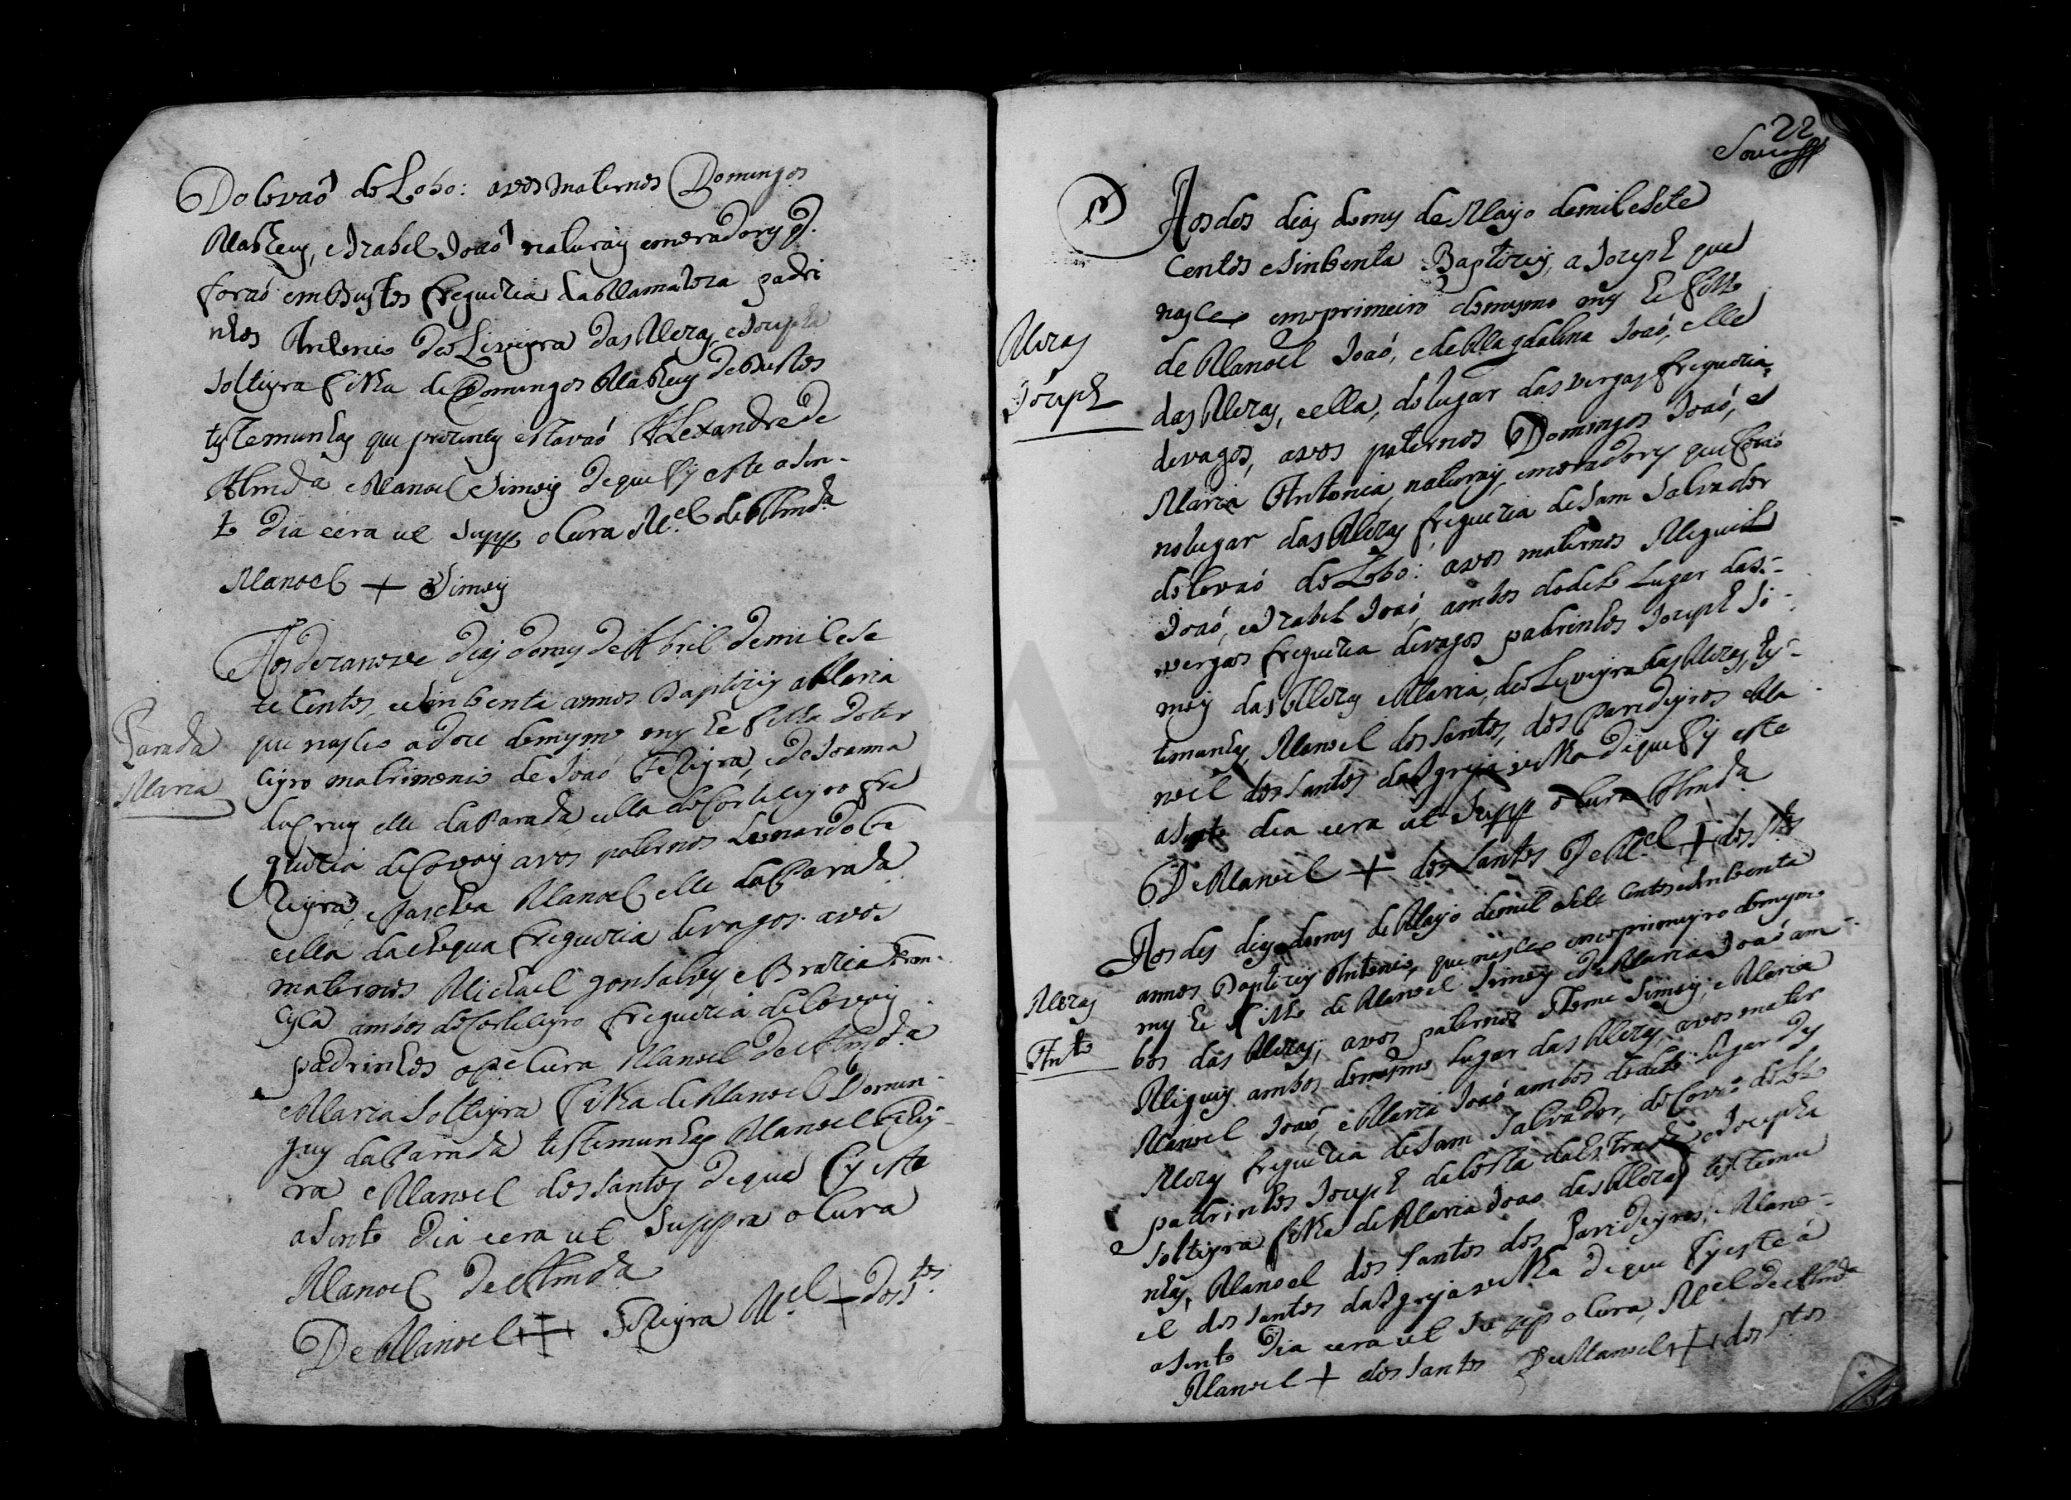 Do Covaõ do Lobo: avos maternos Domingos
Matheuy, e Izabel Joaõ naturay e moradory q.
foraõ em Bustos freguezia da Mamaroza padri
nhos Antonio de Liveyra das Mezas, e Josepha
solteyra filha de Domingos Matheuy de Bustos
testemunhas que prezentes estavaõ Alexandre de
Almda e Manoel Simoiz de que fiz este asen-
to dia e era ut supp o Cura Mel de Almda
Manoel + Simoiz
Aos dezanove dias do mes de Abril de mil e se
te Centos, e sinCoenta annos Baptizey a Maria
que nasceo a doze do mesmo mes he filha do ter
ceyro matrimonio de Joaõ Ferreyra, e de Joanna
da Cruz elle da Parada, e ella do Corticeyro fre
guezia de Covoiz avos paternos Leonardo Fe
rreyra, e Pascoa Manoel elle da Parada
e ella da freguezia de Vagos. avos
maternos Michael gonsalvez e Brazia Fran-
cisca ambos do Corticeyro freguezia de Covoiz
padrinhos o Pe Cura Manoel de Almda
e Maria solteyra filha de Manoel Domin-
guez da Parada testemunhas Manoel Ferrey-
ra e Manoel dos Santos de que fiz este
asento dia e era ut suppra o Cura
Manoel de Almda
De Manoel + Ferreyra Mel + dos Stos
Parada
Maria
22
Aos dos dias do mes de Mayo de mil e sete
Centos e sinCoenta Baptizey, a Joseph que
nasceo em o primeiro do mesmo mes he filho
de Manoel Joaõ, e de Magdalena Joaõ, elle
das Mezas, e ella, do lugar das vergas freguezia
de vagos, avos paternos Domingos Joaõ, e
Maria Antonia, naturay, e moradory que foraõ
no lugar das Mezas freguezia de Sam Salvador
do Covaõ do Lobo: avos maternos Meguel
Joaõ, e Izabel Joaõ, ambos do dito Lugar das
vergas freguezia de vagos padrinhos Joseph Si-
moiz das Mezas e Maria, de Liveyra das Mezas, tes-
temunhas, Manoel dos Santos, dos Paredeyros e Ma
noel dos Santos da Igreja velha de que fiz este
asento dia e era ut supp o Cura Almda
De Manoel + dos Santos De Mel + dos Stos
Mezas
Joseph
Aos des dias do mes de Mayo de mil e sete Centos e sinCoenta
annos Baptizey Antonio, que nasceo em o primeyro do mesmo
mes he filho de Manoel Simoiz e de Maria Joaõ am-
bos das Mezas, avos paternos Thome Simoiz, e Maria
Migueis ambos do mesmo Lugar das Mezas, avos mater
Manoel Joaõ, e Maria Joaõ ambos do dito Lugar das
Mezas freguezia de Sam Salvador, do Covaõ do Lobo
padrinhos Joseph da Costa da Estrada e Josepha
solteyra filha de Maria Joaõ das Mezas testemu
nhas, Manoel dos Santos dos Paredeyros, e Mano-
el dos Santos da Igreja velha de que fiz este a
sento dia e era ut supp o Cura, Mel de Almda
Manoel + dos Santos De Manoel + dos Stos
Mezas
Anto